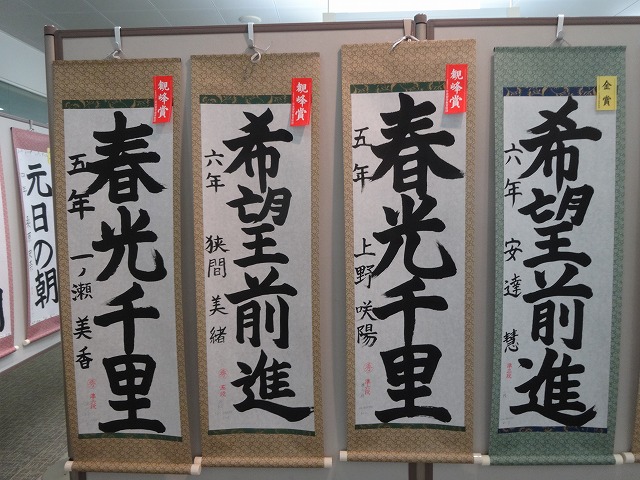 観峰賞
春光千里
五年 一ノ瀬 美香
観峰賞
希望前進
六年 狭間 美緒
観峰賞
春光千里
五年 上野 咲陽
金賞
希望前進
六年 安達 慧
元日の朝